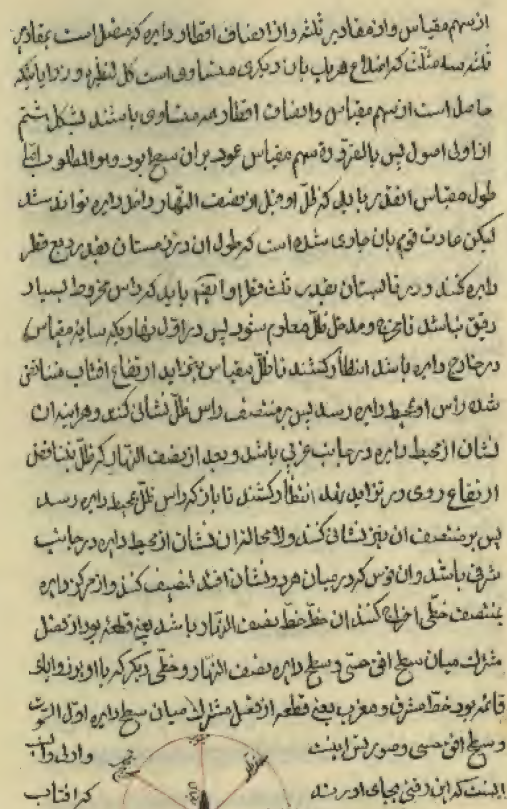 از سهم مقیاس و از مقادیر ثلثه و از انصاف اقطار دایره که متصل است بمقادیر
ثلثه سه مثلث که اضلاع هر یک بان دیگری متساوی است کل لنظیره و زوایائیکه
حاصل است از سهم مقیاس و انصاف اقطار همه متساوی باشند بشکل هشتم
از اولی اصول پس بالضروره سهم مقیاس عمود بر ان سطح بود و هو المطلوب
طول مقیاس انقدر باید که ظل او قبل از نصف النهار داخل دایره تواند شد
لیکن عادت قوم بان جاری شده است که طول ان در زمستان بقدر ربع قطر
دایره کنند و در تابستان بقدر ثلث قطر و ایضا باید که راس مخروط بسیار
دقیق نباشد تا مخرج و مدخل ظل معلوم شود پس در اول نهار که سایه مقیاس
در خارج دایره باشد انتظار کشند تا ظل مقیاس بتزاید ارتفاع افتاب متناقص
شده راس او بمحیط دایره رسد پس بر منتصف راس ظل نشانی کنند و هراینه ان
نشان از محیط دایره در جانب غربی باشد و بعد از نصف النهار که ظل بتناقص
ارتفاع روی در تزاید نهد انتظار کشند تا باز که راس ظل بمحیط دایره رسد
پس بر منتصف ان نیز نشانی کنند و لا محاله ان نشان از محیط دایره در جانب
شرقی باشد و ان قوس که در میان هر دو نشان افتد تنصیف کنند و از مرکز دایره
بمنتصف خطی اخراج کنند ان خط خط نصف النهار باشد یعنی قطعه بود از فصل
مشترک میان سطح افق حسی و سطح دایره نصف النهار و خطی دیگر که با او بر زوایای
قائمه بود خط مشرق و مغرب یعنی قطعه از فصل مشترک میان سطح دایره اول السموت
و سطح افق حسی و صورتش اینست و اولی و انسب
اینست که این وقتی بجای اورند که افتاب